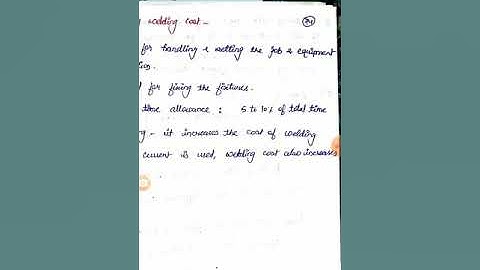 welding cost -
24
for handling & setting the job & equipment
for fixing the fixtures.
allowance : 5 to 10% of total time
- it increases the cost of welding
current is used, welding cost also increases